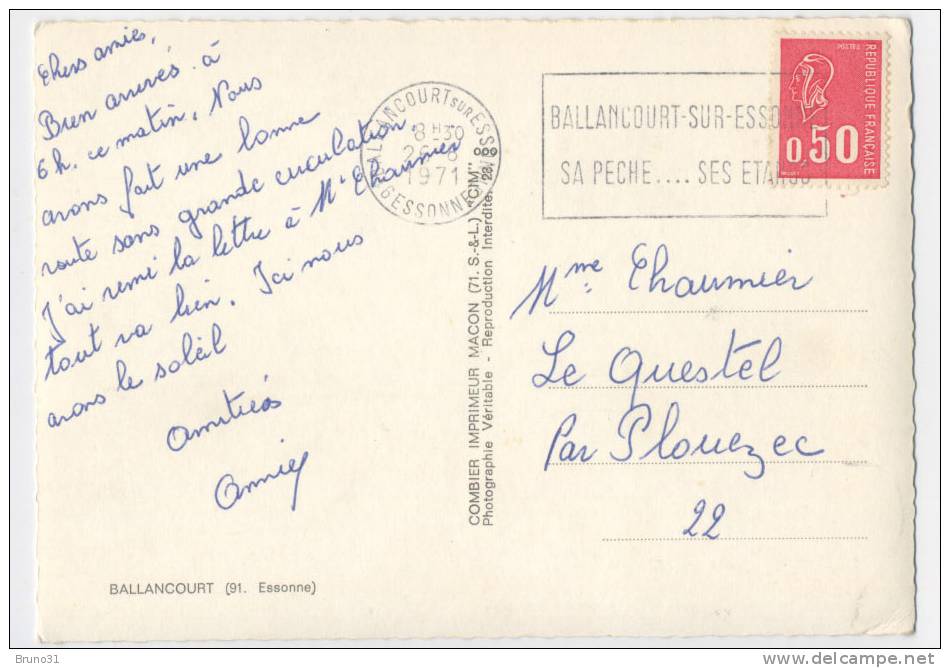 Chers amies,
Bien arrivés à
6h. ce matin. Nous
avons fait une bonne
route sans grande circulation.
J'ai remi la lettre à Mr Chaumier
tout va bien. Ici nous
avons le soleil
Amitiés
Annie
BALLANCOURT (91. Essonne)
COMBIER IMPRIMEUR MACON (71. S.-&-L.) "CIM"
Photographie Véritable - Reproduction Interdite
BALLANCOURT SUR ESSONNE
8H30
26-8
1971
91 ESSONNE
BALLANCOURT-SUR-ESSONNE
SA PECHE.... SES ETANGS
POSTES
REPUBLIQUE FRANÇAISE
0,50
Mme Chaumier
Le Questel
Par Plouezec
22
Bruno31
www.delcampe.net